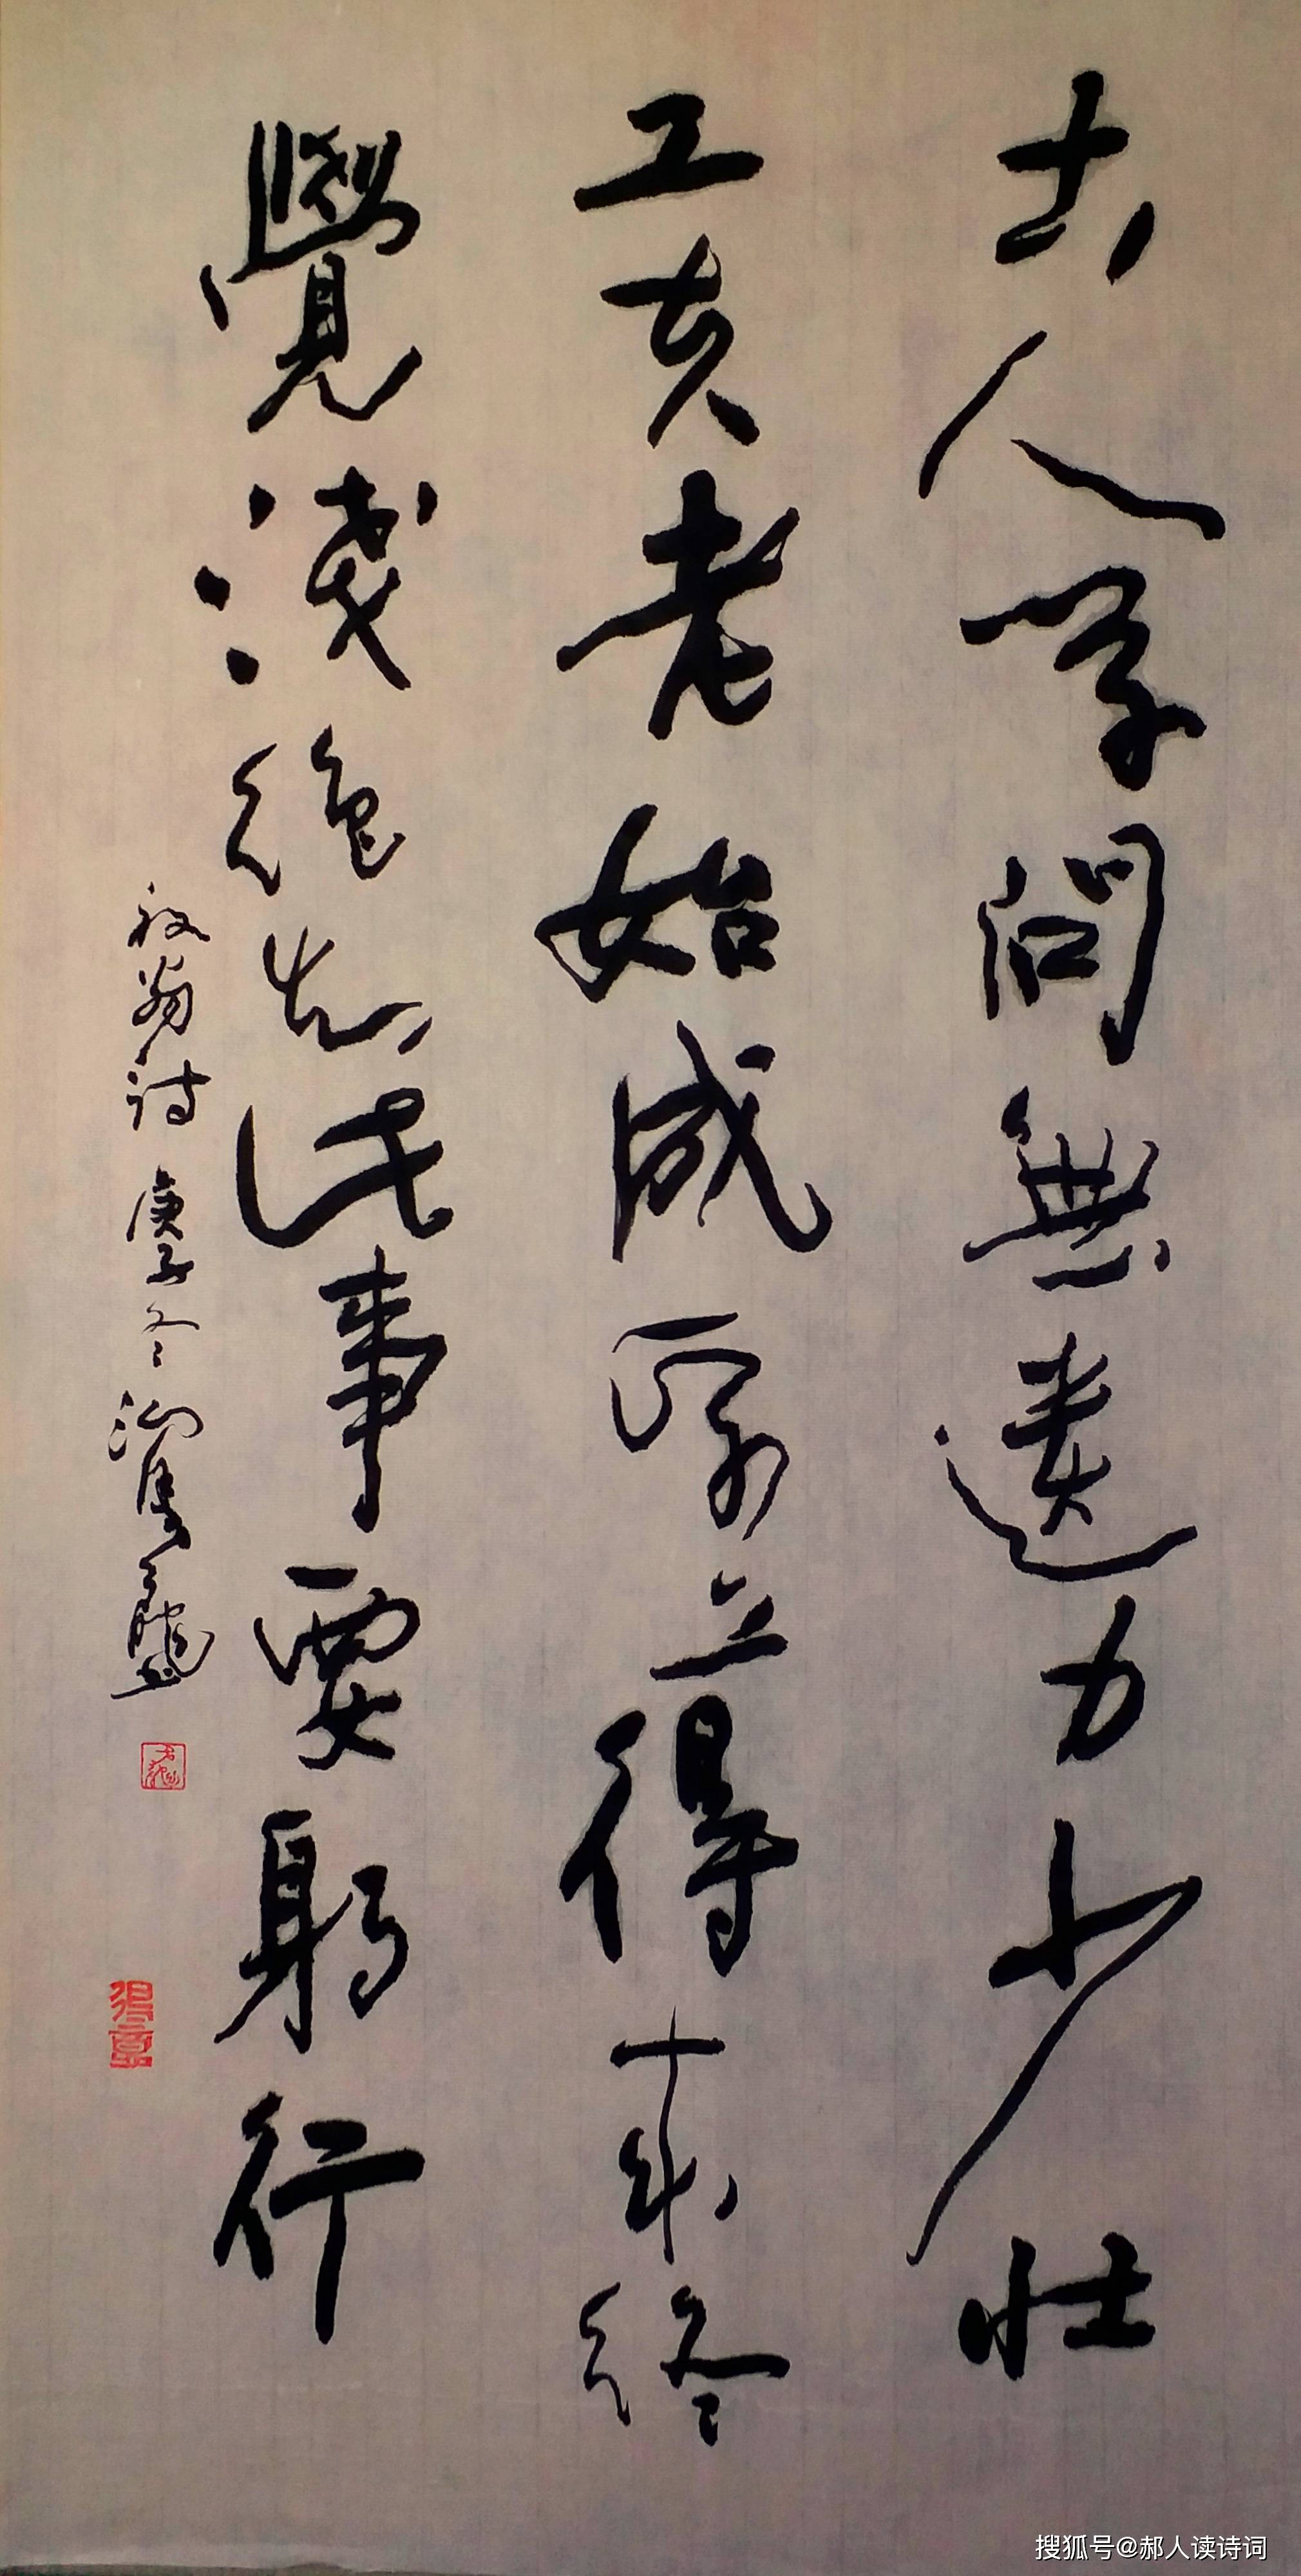 古人学問無遺力少壮
工夫老始成紙上得来终
覺淺绝知此事要躬行
放翁诗 庚子冬
得意
搜狐号@郝人读诗词